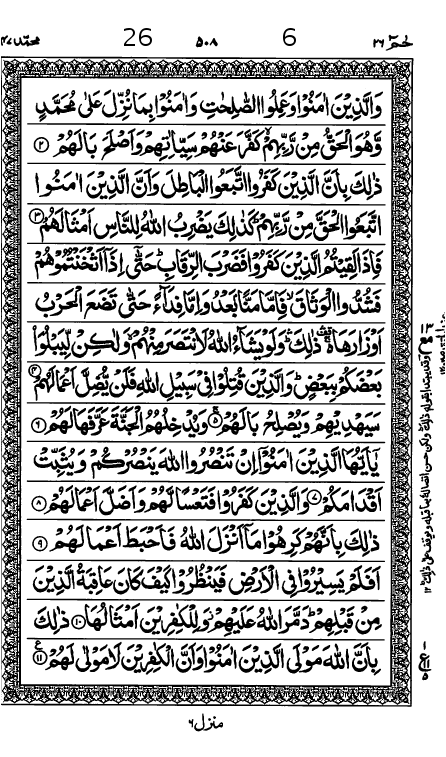 حٰمٓ ٢٦ 6 ٥٠٨ 26 محمد ٤٧
وَالَّذِيْنَ اٰمَنُوْا وَعَمِلُوا الصّٰلِحٰتِ وَاٰمَنُوْا بِمَا نُزِّلَ عَلٰى مُحَمَّدٍ
وَّهُوَ الْحَقُّ مِنْ رَّبِّهِمْ ۙ كَفَّرَ عَنْهُمْ سَيِّاٰتِهِمْ وَاَصْلَحَ بَالَهُمْ ﴿٢﴾
ذٰلِكَ بِاَنَّ الَّذِيْنَ كَفَرُوا اتَّبَعُوا الْبَاطِلَ وَاَنَّ الَّذِيْنَ اٰمَنُوا
اتَّبَعُوا الْحَقَّ مِنْ رَّبِّهِمْ ؕ كَذٰلِكَ يَضْرِبُ اللّٰهُ لِلنَّاسِ اَمْثَالَهُمْ ﴿٣﴾
فَاِذَا لَقِيْتُمُ الَّذِيْنَ كَفَرُوْا فَضَرْبَ الرِّقَابِ ؕ حَتّٰۤى اِذَاۤ اَثْخَنْتُمُوْهُمْ
فَشُدُّوا الْوَثَاقَ ۙ فَاِمَّا مَنًّۢا بَعْدُ وَاِمَّا فِدَآءً حَتّٰى تَضَعَ الْحَرْبُ
اَوْزَارَهَا ۛ ذٰلِكَ ۛ وَلَوْ يَشَآءُ اللّٰهُ لَانْتَصَرَ مِنْهُمْ وَلٰكِنْ لِّيَبْلُوَا۟
بَعْضَكُمْ بِبَعْضٍ ؕ وَالَّذِيْنَ قُتِلُوْا فِيْ سَبِيْلِ اللّٰهِ فَلَنْ يُّضِلَّ اَعْمَالَهُمْ ﴿٤﴾
سَيَهْدِيْهِمْ وَيُصْلِحُ بَالَهُمْ ﴿٥﴾ وَيُدْخِلُهُمُ الْجَنَّةَ عَرَّفَهَا لَهُمْ ﴿٦﴾
يٰۤاَيُّهَا الَّذِيْنَ اٰمَنُوْۤا اِنْ تَنْصُرُوا اللّٰهَ يَنْصُرْكُمْ وَيُثَبِّتْ
اَقْدَامَكُمْ ﴿٧﴾ وَالَّذِيْنَ كَفَرُوْا فَتَعْسًا لَّهُمْ وَاَضَلَّ اَعْمَالَهُمْ ﴿٨﴾
ذٰلِكَ بِاَنَّهُمْ كَرِهُوْا مَاۤ اَنْزَلَ اللّٰهُ فَاَحْبَطَ اَعْمَالَهُمْ ﴿٩﴾
اَفَلَمْ يَسِيْرُوْا فِي الْاَرْضِ فَيَنْظُرُوْا كَيْفَ كَانَ عَاقِبَةُ الَّذِيْنَ
مِنْ قَبْلِهِمْ ؕ دَمَّرَ اللّٰهُ عَلَيْهِمْ ۫ وَلِلْكٰفِرِيْنَ اَمْثَالُهَا ﴿١٠﴾ ذٰلِكَ
بِاَنَّ اللّٰهَ مَوْلَى الَّذِيْنَ اٰمَنُوْا وَاَنَّ الْكٰفِرِيْنَ لَا مَوْلٰى لَهُمْ ﴿١١﴾
منزل ٦